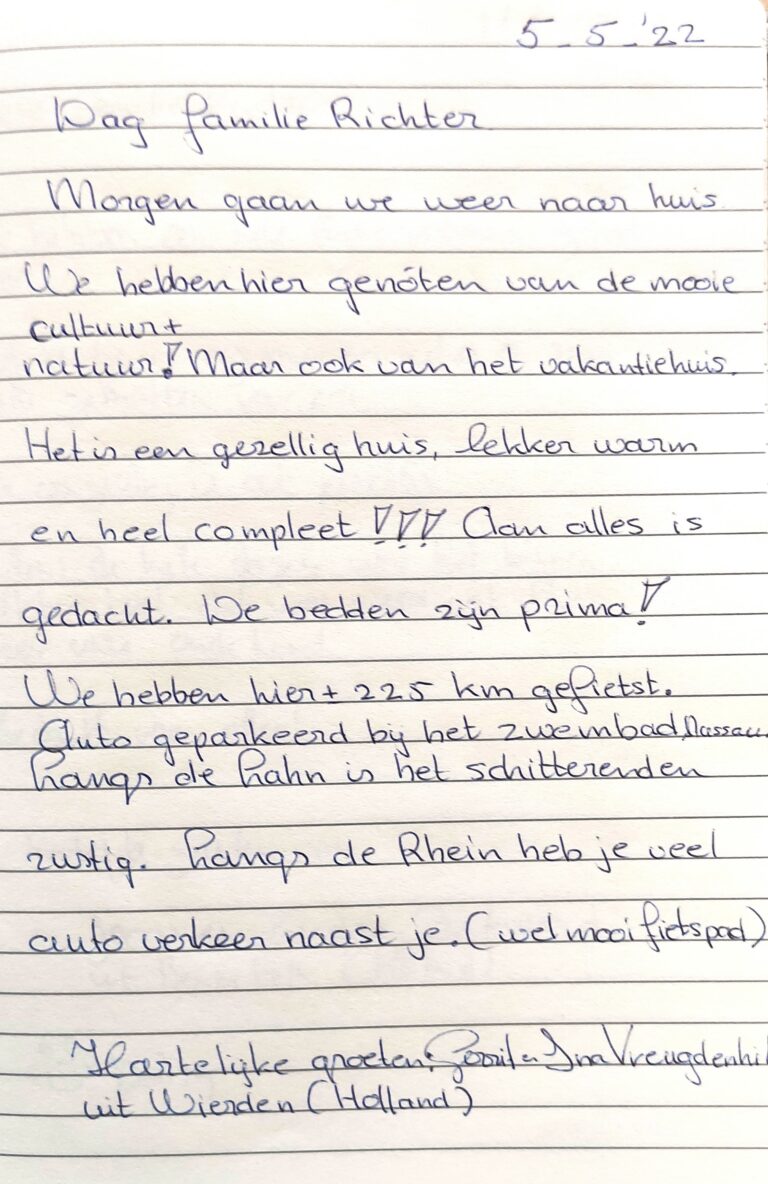 5-5-'22
Dag familie Richter
Morgen gaan we weer naar huis
We hebben hier genoten van de mooie
cultuur +
natuur! Maar ook van het vakantiehuis.
Het is een gezellig huis, lekker warm
en heel compleet!!! Aan alles is
gedacht. De bedden zijn prima!
We hebben hier ± 225 km gefietst.
Auto geparkeerd bij het zwembad, Nassau.
Langs de Lahn is het schitterend en
rustig. Langs de Rhein heb je veel
auto verkeer naast je. (wel mooi fietspad)
Hartelijke groeten, Gerrit en Ina Vreugdenhil
uit Wierden (Holland)